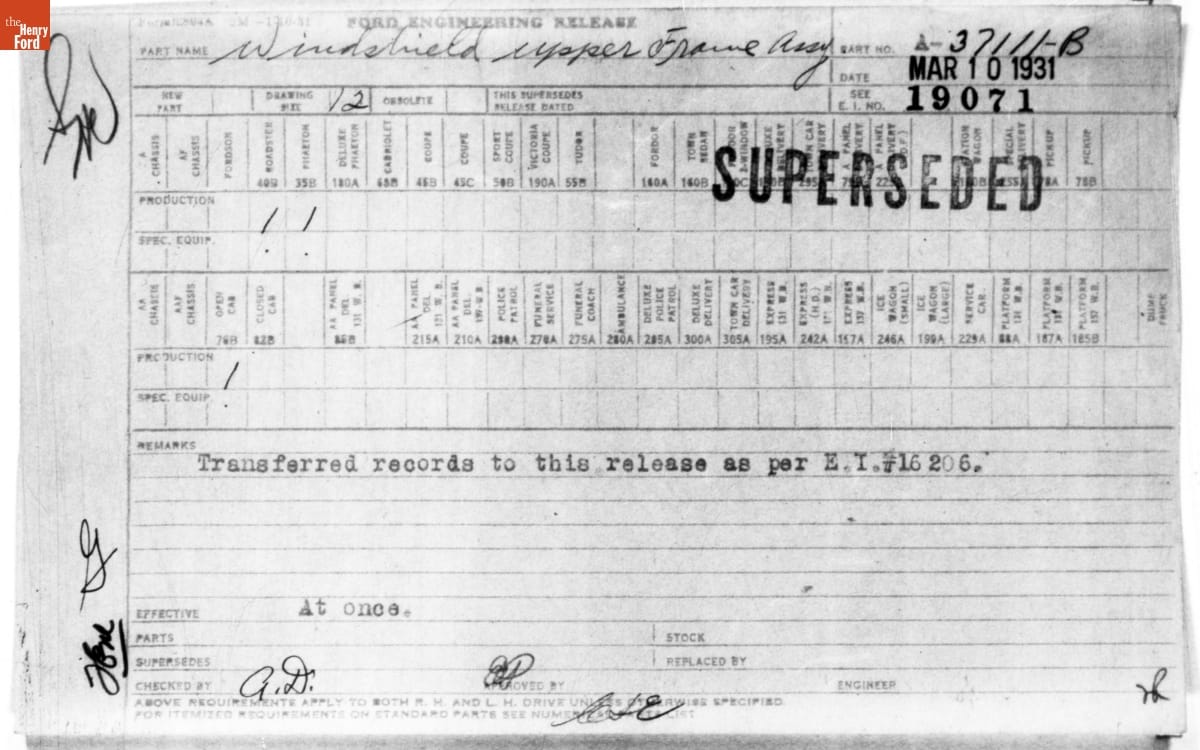 the Henry Ford
FORD ENGINEERING RELEASE
PART NAME Windshield upper Frame Assy PART NO. A-37111-B
DATE MAR 10 1931
NEW PART DRAWING SIZE 12 OBSOLETE THIS SUPERSEDES RELEASE DATED SEE E. I. NO. 19071
A CHASSIS AF CHASSIS FORDSON ROADSTER PHAETON DELUXE PHAETON CABRIOLET COUPE COUPE SPORT COUPE VICTORIA COUPE TUDOR FORDOR TOWN SEDAN PICKUP PICKUP
40B 35B 180A 68B 45B 45C 50B 190A 55B 160A 160B 78B
SUPERSEDED
PRODUCTION 1 1
SPEC. EQUIP.
AA CHASSIS AAF CHASSIS OPEN CAB CLOSED CAB AA PANEL DEL 131 W. B. AA PANEL DEL 131 W. B. AA PANEL DEL. 157 W.B POLICE PATROL FUNERAL SERVICE FUNERAL COACH AMBULANCE DELUXE POLICE PATROL DELUXE DELIVERY TOWN CAR DELIVERY EXPRESS 131 W.B. EXPRESS (H.D.) 131 W.B. EXPRESS 157 W.B. ICE WAGON (SMALL) ICE WAGON (LARGE) SERVICE CAR PLATFORM 131 W.B. PLATFORM 157 W.B. PLATFORM 157 W.B. DUMP TRUCK
76B 82B 85B 215A 210A 270A 275A 280A 285A 300A 305A 195A 242A 197A 246A 199A 229A 88A 187A 185B
PRODUCTION 1
SPEC. EQUIP.
REMARKS
Transferred records to this release as per E.I.#16206.
EFFECTIVE At once.
PARTS STOCK
SUPERSEDES REPLACED BY
CHECKED BY A.D. APPROVED BY ENGINEER
ABOVE REQUIREMENTS APPLY TO BOTH R. H. AND L. H. DRIVE UNLESS OTHERWISE SPECIFIED.
FOR ITEMIZED REQUIREMENTS ON STANDARD PARTS SEE NUMERICAL PARTS LIST